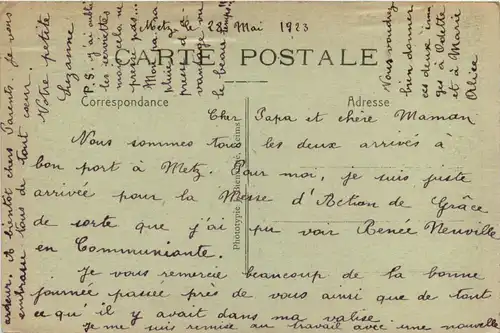 Metz le 28 Mai 1923
CARTE POSTALE
Correspondance
Adresse
Cher Papa et chère Maman
Nous sommes tous les deux arrivés à
bon port à Metz. Pour moi, je suis juste
arrivée pour la Messe d'Action de Grâce
de sorte que j'ai pu voir Renée Neuville
en Communiante.
Je vous remercie beaucoup de la bonne
journée passée près de vous ainsi que de tout
ce qu'il y avait dans ma valise.
Je me suis remise au travail avec une nouvelle
ardeur. A bientôt chers Parents. Je vous
embrasse tous de tout cœur.
Votre petite
Suzanne
P.S. j'ai oublié
les serviettes
mais cela ne
presse pas...
pluie
presse et
le beau temps!!
Vous voudrez
bien donner
ces deux
à Odette
et à Marie
Alice
Phototypie
Reims